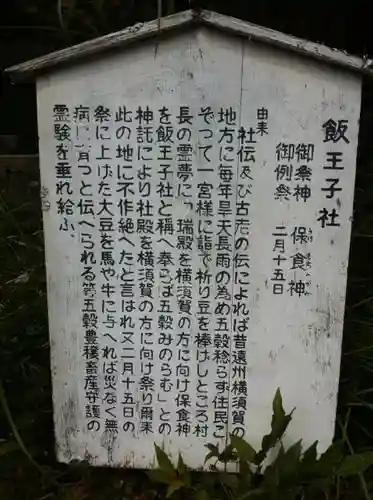 飯王子社
御祭神 保食神
うけもちのかみ
御例祭 二月十五日
由来
社伝及び古老の伝によれば昔遠州横須賀の
地方に毎年旱天長雨の為め五穀稔らず住民こ
ぞって一宮様に詣で祈り豆を棒けしところ村
長の霊夢に「瑞殿を横須賀の方に向け保食神
を飯王子社と稱へ奉らば五穀みのらむ」との
神託により社殿を横須賀の方に向け祭り爾来
此の地に不作絶へたと言はれ又二月十五日の
祭に上げた大豆を馬や牛に与へれば災なく無
病に育つと伝へられる等五穀豊穣畜産守護の
霊験を垂れ給ふ、